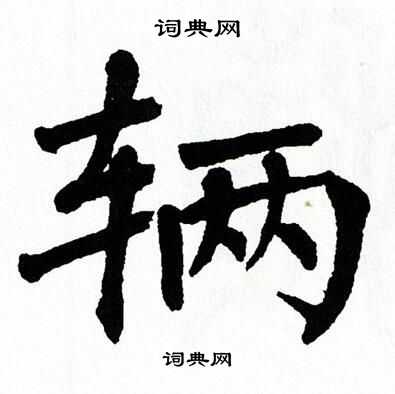 词典网
辆
词典网